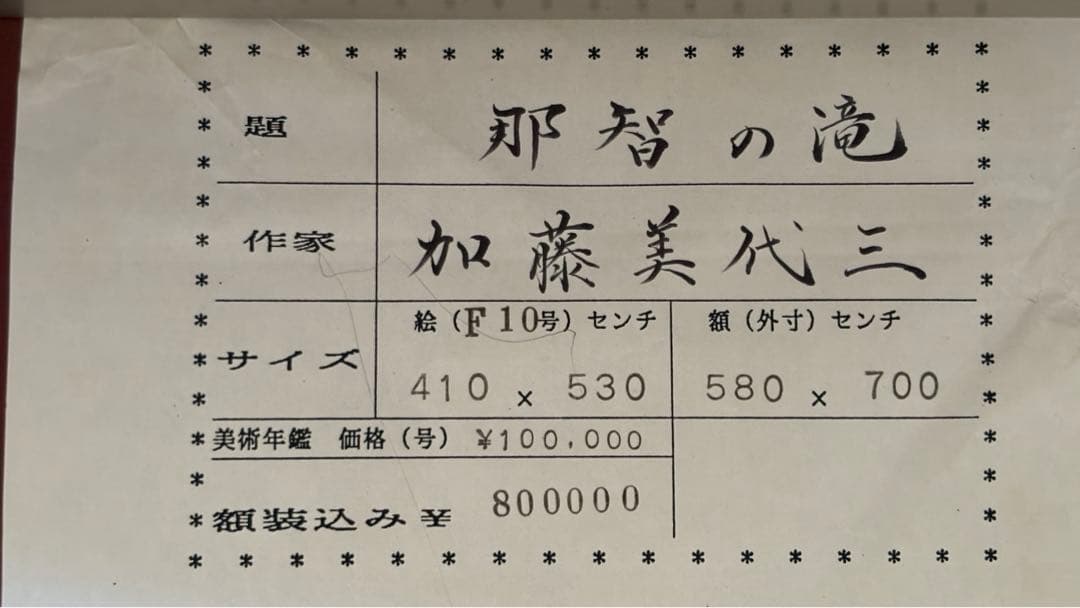 題 那智の滝
作家 加藤美代三
サイズ 絵（F10号）センチ 額（外寸）センチ
410 x 530 580 x 700
美術年鑑 価格（号） ¥100,000
額装込み¥ 800000